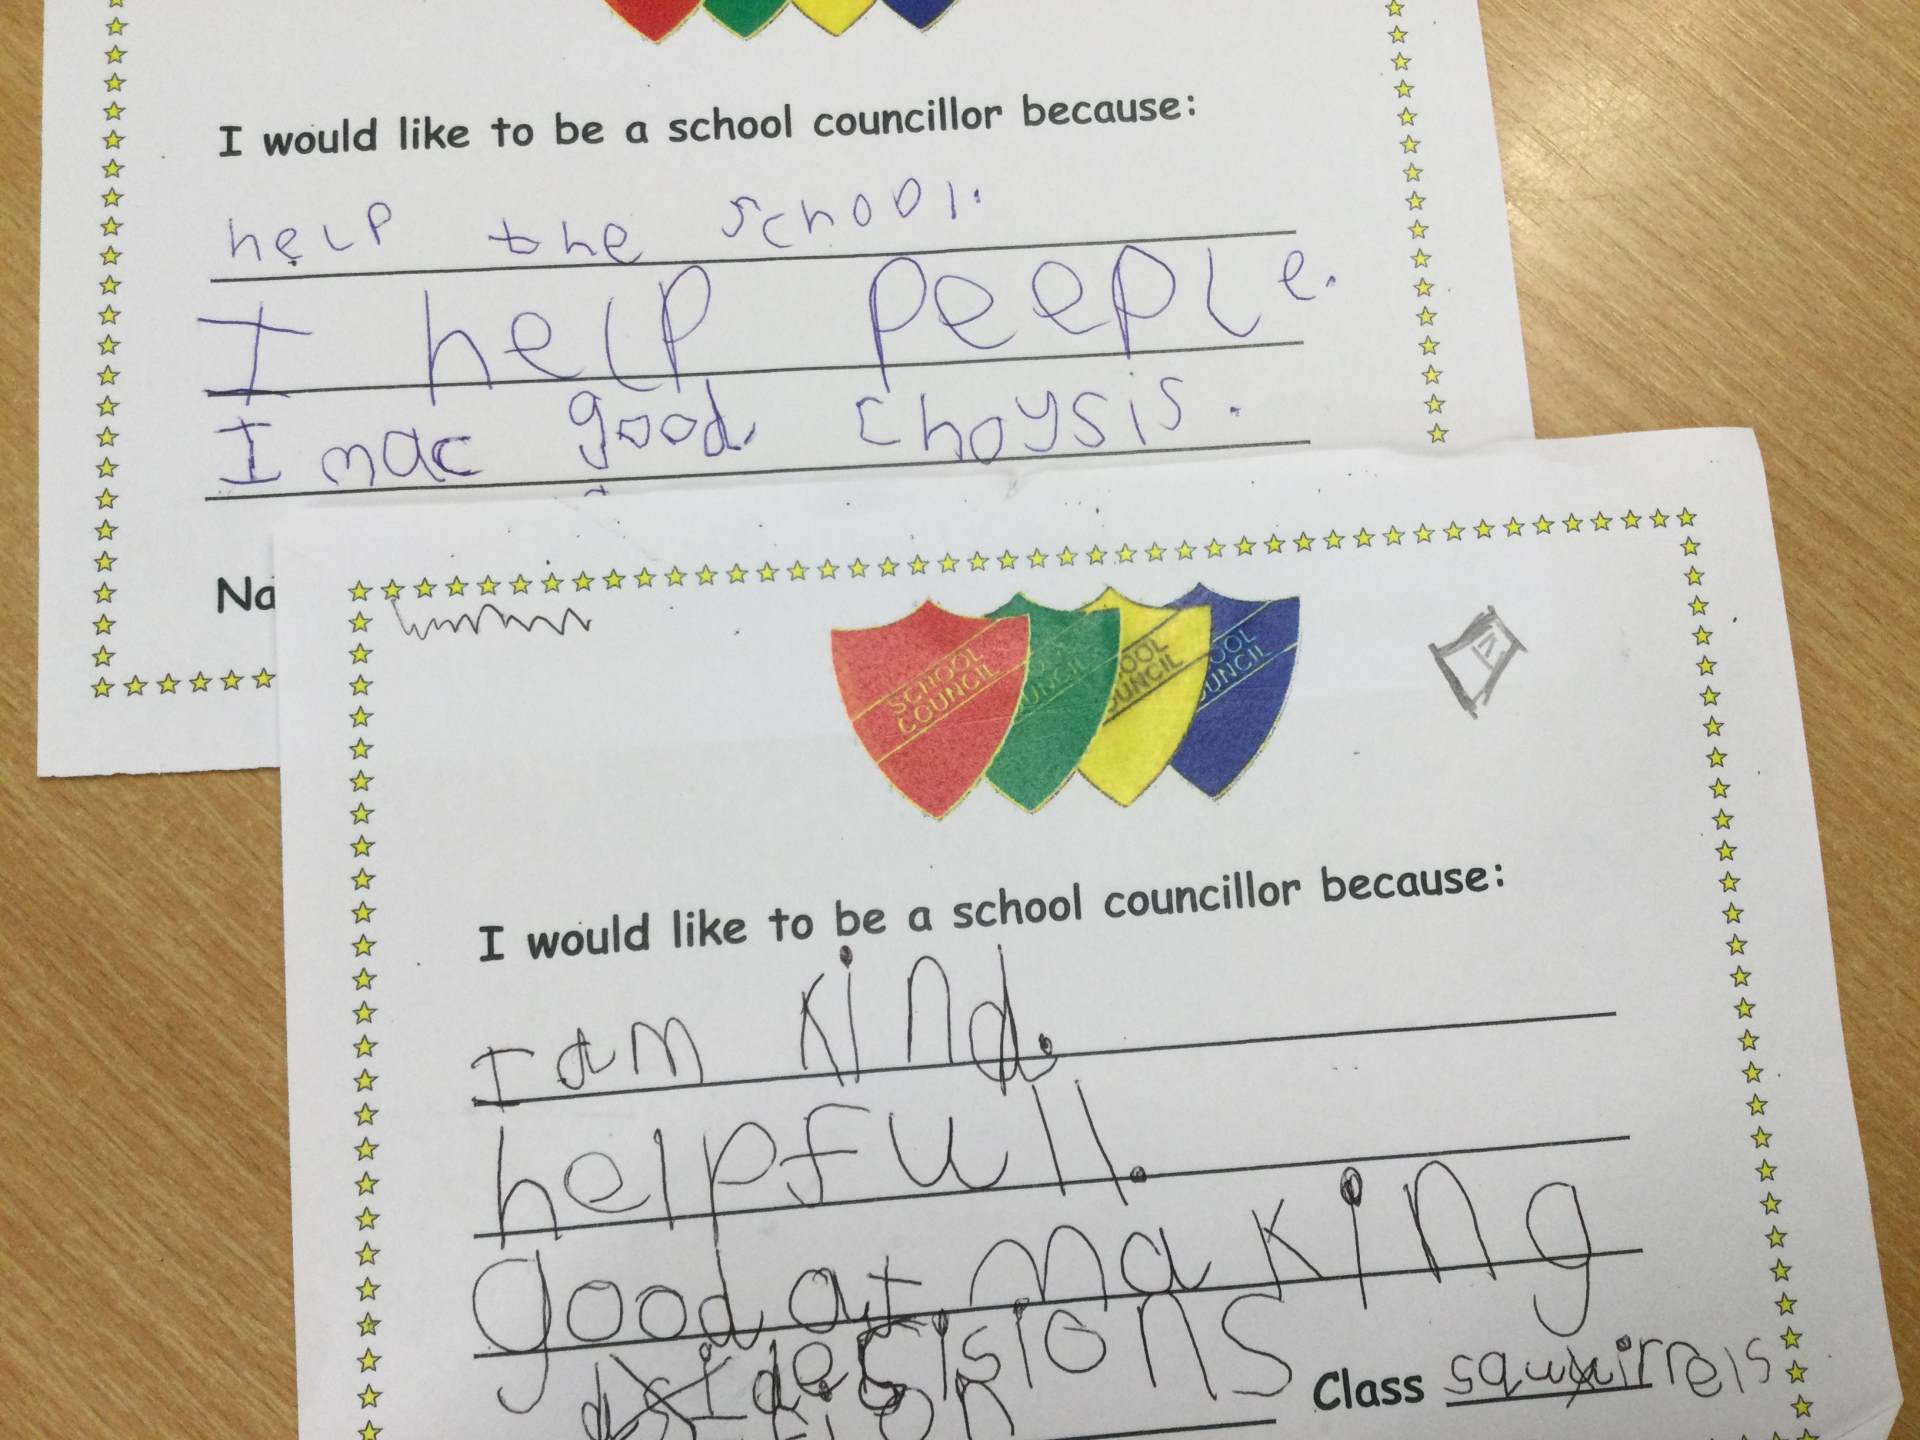 I would like to be a school councillor because:
help the school.
I help peeple.
I mac good choysis.
Na
SCHOOL COUNCIL
OOL UNCIL
OOL UNCIL
OOL UNCIL
I would like to be a school councillor because:
I am kind.
helpfull.
good at making
decisions
Class squirrels